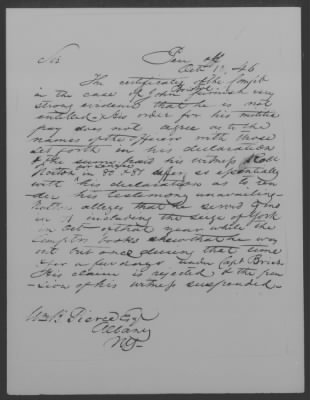 Sir Pen off
Octr 1, 46
The certificate of the Compt
in the case of John furnish very
strong evidence that he is not
entitled. His order for his militia
pay does not agree as to the
names of the officers with those
set forth in his declaration
& the same hand his witness
in 80 & 81 differ so essentially
with his declarations as to ren
der his testimony unavailing.
alleges that he served 9 mo
in 81 including the siege of York
in Oct of that year while the
Comptrs books show that he was
out but once during that time
& for a few days under Capt
His claim is rejected & the pen
sion of his witness suspended.
Wm B. Pierce Esqr
Albany
N.Y.